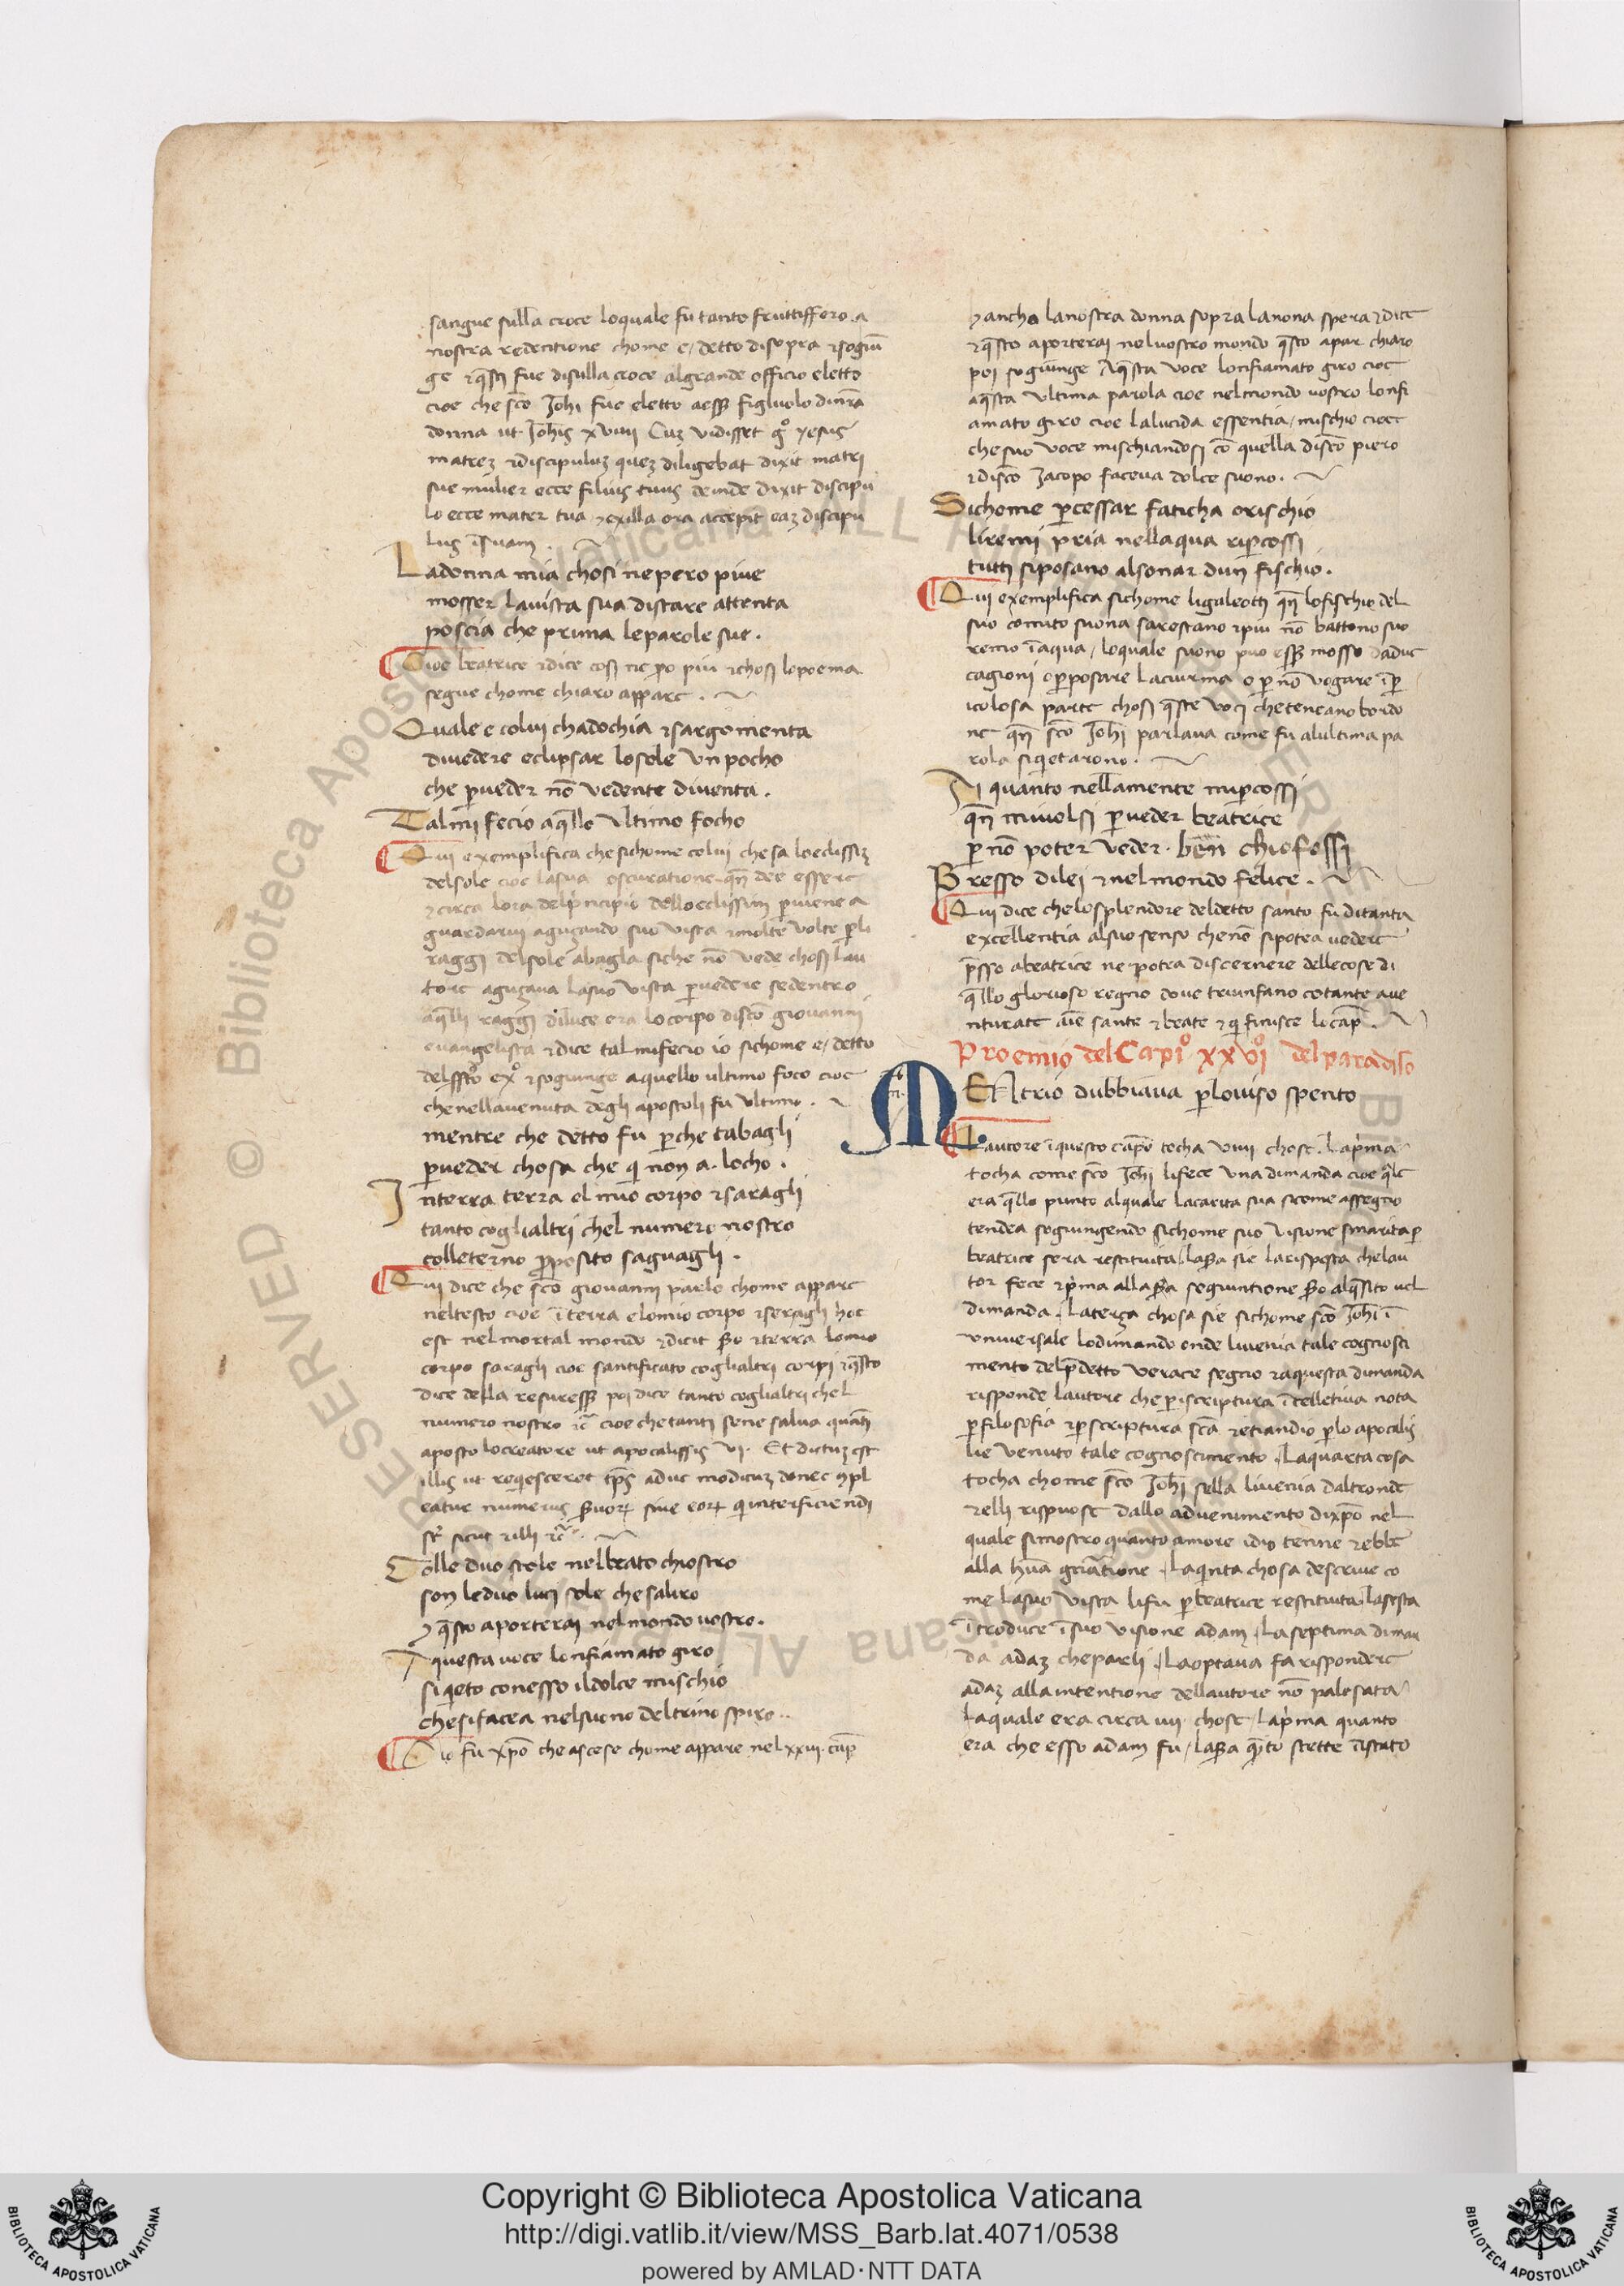 sangue sulla croce loquale fu tanto fruttiffero a
nostra redentione chome e/detto disopra ⁊sogiũ
ge ⁊q̃sti fue disulla croce algrande officio eletto
cioe che sc̃o Joh̃i fue eletto aess̃ figluolo din̄ra
donna ut Joh̃is xviiii Cuʒ vidisset g̊ yesus
matreʒ ⁊discipuluʒ queʒ diligebat dixit matri
sue mulier ecce filius tuus deinde dixit discipu
lo ecce mater tua ⁊exilla ora accepit eaʒ discipu
lus ĩsuam.
Ladonna mia chosi nepero piue
mosser lauista sua distare attenta
poscia che prima leparole sue.
Cioe beatrice ⁊dice cosi ne ꝑo piu ⁊chosi lopoema
segue chome chiaro appare.
Quale e colui chadochia ⁊sargomenta
diuedere eclipsar losole vn pocho
che ꝑueder nõ vedente diuenta.
Talmi fecio aq̃llo vltimo focho
Qui exemplifica che sichome colui che sa loeclissiʒ
delsole cioe lasua oscuratione qñ dee essere
⁊circa lora delp̃ncipio delloeclissim ꝑuiene a
guardarui aguʒando suo vista ⁊molte volte ꝑli
raggi delsole abagla siche nõ vede chosi lau
tore aguʒaua lasuo vista ꝑuedere sedentro
aq̃lli raggi diluce era lo corpo disc̃o giouanni
euangelista ⁊dice talmifecio io sichome e/detto
delss̃to ex̊ ⁊sogiunge aquello ultimo foco cioe
chenellauenuta degli apostoli fu vltimo.
mentre che detto fu ꝑche tabagli
ꝑueder chosa che qi non a. locho.
Interra terra el mio corpo ⁊saragli
tanto coglialtri chel numero nostro
colleterno ꝓposito saguagli.
Qui dice che sc̃o giouanni parlo chome appare
neltesto cioe ĩ terra elomio corpo ⁊seragli hoc
est nel mortal mondo ⁊dicit ⁊terra lomio
corpo saragli cioe santificato coglialtri corpi ⁊q̃sto
dice della resuress̃ poi dice tanto coglialtri chel
numero nostro ⁊c̃ cioe che tanti sene salua quanti
aposto locreatore ut apocalissis vi. Et dictuʒ est
illis ut reqiesceret tp̃s aduc modicuʒ donec ꝯpl
eatur numerus seruoꝝ siue eoꝝ qi interficiendi
sr̃ sicut ⁊illi ⁊c̃.
Colle duo stole nelbeato chiostro
son leduo luci sole che saliro
⁊ q̃sto aporterai nel mondo uostro.
A questa uoce lonfiamato giro
siqieto conesso ildolce mischio
chesifacea nelsuono deltrino spiro..
Cio fu xp̃o che ascese chome appare nel xxiii. cap̃
⁊ancho lanostra donna sopra lanona spera ⁊dice
⁊q̃sto aporterai neluostro mondo q̃sto apar chiaro
poi sogiunge Aq̃sta voce lonfiamato giro cioe
aq̃sta vltima parola cioe nelmondo uostro lonfi
amato giro cioe lalucida essentia/mischio cioe
chesuo voce mischiandosi cõ quella disc̃o piero
⁊disc̃o Jacopo faceua dolce suono.
Sichome ꝑcessar faticha orischio
liremi pria nellaqua riꝑcossi
tutti siposano alsonar dun fischio.
Qui exemplifica sichome ligaleotti qñ lofischio del
suo comito suona sarestano ⁊piu nõ battono suo
remo ĩ aqua/loquale suono puo ess̃ mosso daduc
cagioni o ꝑposare laciurma o ꝑ nõ vogare ĩ ꝑ
icolosa parte chosi q̃ste voci cheteneano bordo
ne qñ sc̃o Joh̃i parlaua come fu alultima pa
rola siqietarono.
Ai quanto nellamente miꝑcossi
qñ miuolsi ꝑueder beatrice
ꝑ nõ poter veder. ben chiofossi
Presso dilei ⁊nel mondo felice.
Qui dice chelosplendore deldetto santo fu ditanta
excellentia alsuo senso chenõ sipotea uedere
p̃sso abeatrice ne potea discernere dellecose di
q̃llo glorioso regno doue triunfano cotante aue
nturate aĩe sante ⁊beate ⁊qi finisce locap̃.
Proemio del Capi̊. xxvi̊ del paradiso
MENtrio dubbiaua ꝑlouiso spento
Lautore ĩ questo cap̃o tocha viiii chose. Lap̃ma
tocha come sc̃o Joh̃i lifece vna dimanda cioe q̃le
era q̃llo punto alquale lacarita sua sicome assegno
tendea sogiungendo sichome suo visione smarita ꝑ
beatrice sera restituita sie larisposta chelau
tor fece ⁊p̃ma alla segiuntione alq̃sito uel
dimanda. Laterça chosa sie sichome sc̃o Joh̃i ĩ
vniuersale lodimando onde liuenia tale cogniosci
mento delp̃detto verace segno ⁊aquesta dimanda
risponde lautore che ꝑiscriptura ĩtelletiua nota
ꝑ filosofia ⁊ꝑscriptura sc̃a ⁊etiandio ꝑlo apocalis
lie venuto tale cognioscimento. Laquarta cosa
tocha chome sc̃o Joh̃i sella liuenia daltronde
⁊elli rispuose dallo aduenimento dixp̃o nel
quale simostro quanto amore idio tenne ⁊ebbe
alla hũa gñatione. Laqinta chosa descriue co
me lasuo vista lifu ꝑ beatrice restituita. lasesta
ĩtroduce ĩ suo visione adam. La septima diman
da adaʒ cheparli. Laoptaua fa rispondere
adaʒ alla intentione dellautore nõ palesata
Laquale era circa iiii. chose. Lap̃ma quanto
era che esso adam fu/ q̃to stette ĩstato
Copyright © Biblioteca Apostolica Vaticana
http://digi.vatlib.it/view/MSS_Barb.lat.4071/0538
powered by AMLAD·NTT DATA
BIBLIOTECA APOSTOLICA VATICANA
BIBLIOTECA APOSTOLICA VATICANA